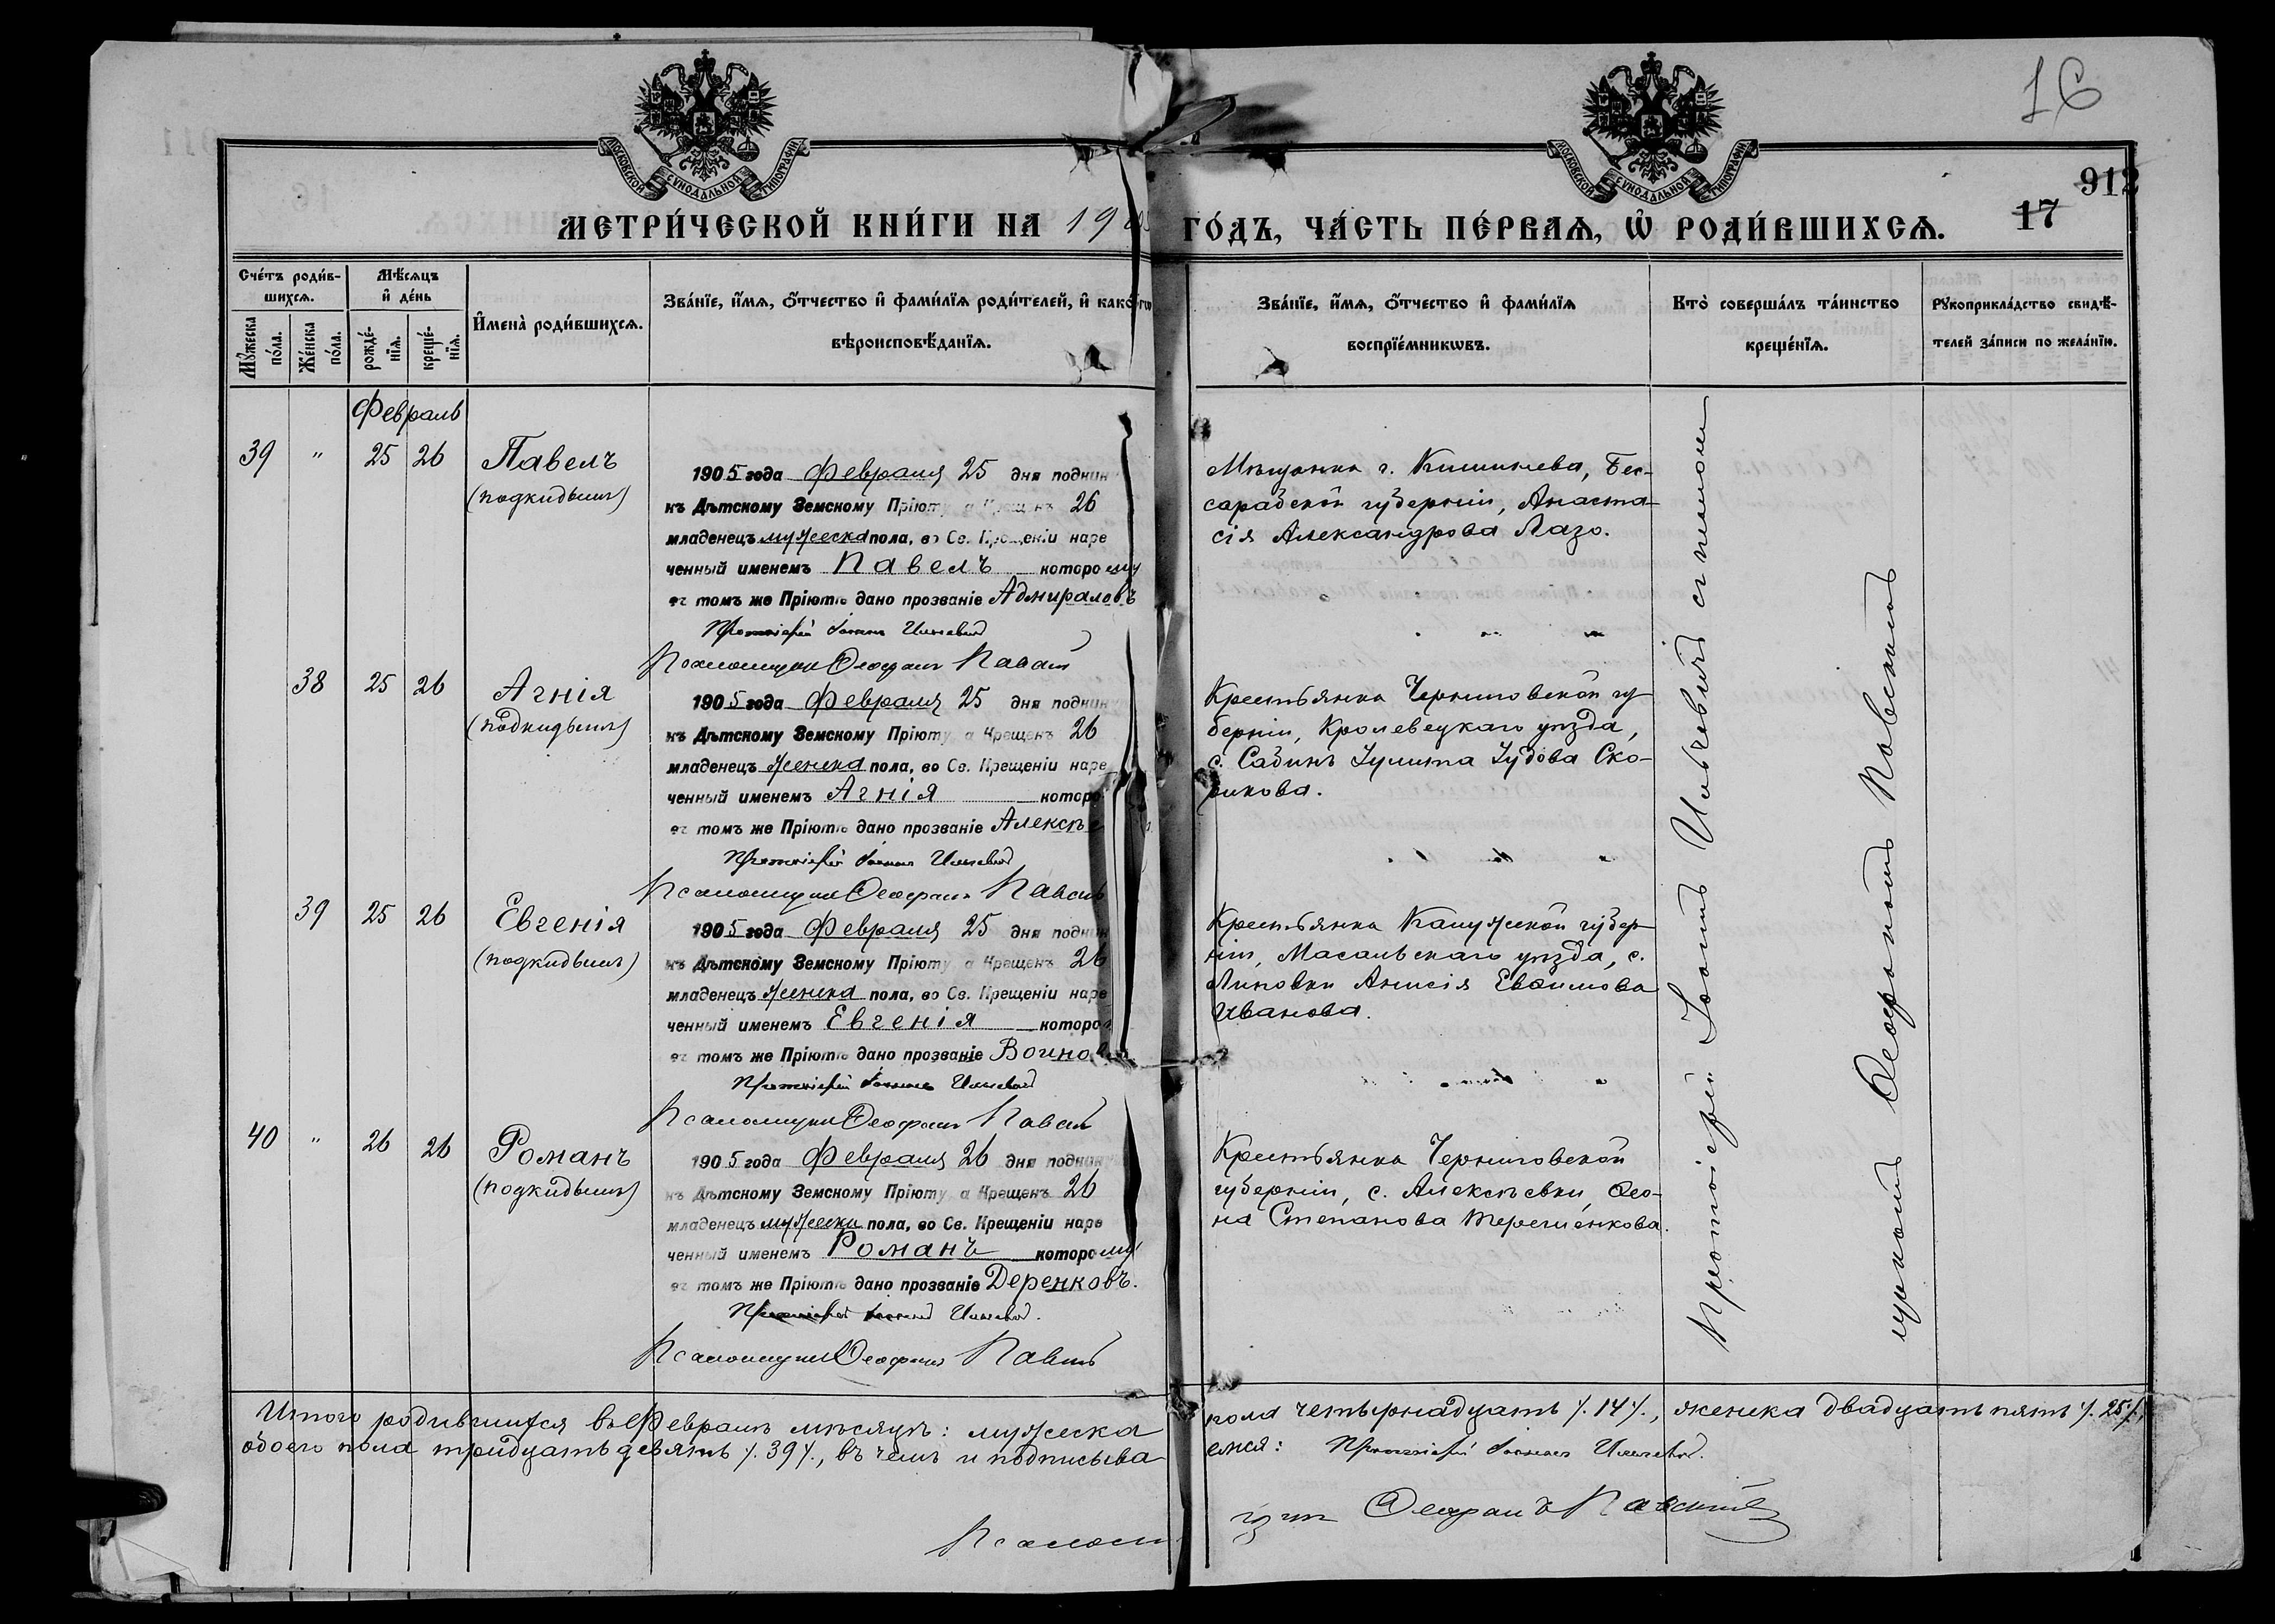 16
912
17
МОСКОВСКОЙ СѴНОДАЛЬНОЙ ТИПОГРАФІИ
МОСКОВСКОЙ СѴНОДАЛЬНОЙ ТИПОГРАФІИ
МЕТРИ́ЧЕСКОЙ КНИ́ГИ НА 1905 ГО́ДЪ, ЧА́СТЬ ПЕ́РВАѦ, Ѡ҆ РОДИ́ВШИХСѦ.
Сче́тъ роди́в-
шихсѧ.
Мꙋ́жеска
по́ла.
Же́нска
по́ла.
Мѣ́сѧцъ
и҆ де́нь
рожде́-
нїѧ.
креще́-
нїѧ.
И҆мена̀ роди́вшихсѧ.
Зва́нїе, и҆́мѧ, ѻ҆́тчество и҆ фами́лїѧ роди́телей, и҆ како́гѡ
вѣроисповѣ́данїѧ.
Зва́нїе, и҆́мѧ, ѻ҆́тчество и҆ фами́лїѧ
воспрїе́мникѡвъ.
Кто̀ соверша́лъ та́инство
креще́нїѧ.
Рꙋкоприкла́дство свидѣ́-
телей за́писи по жела́нїю.
Февраль
39 " 25 26 Павелъ
(подкидышъ)
1905 года Февраля 25 дня подкин
къ Дѣтскому Земскому Пріюту, а Крещенъ 26
младенецъ мужеска пола, во Св. Крещеніи наре
ченный именемъ Павелъ которому
въ томъ же Пріютѣ дано прозваніе Адмираловъ
Протоіерей Іоаннъ Ильчевичъ
Псаломщикъ Ѳеофанъ Павскій
Мѣщанка г. Кишинева, Бес-
сарабской губерніи, Анаста-
сія Александрова Лазо.
38 25 26 Агнія
(подкидышъ)
1905 года Февраля 25 дня подкин
къ Дѣтскому Земскому Пріюту, а Крещенъ 26
младенецъ женска пола, во Св. Крещеніи наре
ченный именемъ Агнія которо
въ томъ же Пріютѣ дано прозваніе Алексѣе
Протоіерей Іоаннъ Ильчевичъ
Псаломщикъ Ѳеофанъ Павскій
Крестьянка Черниговской гу-
берніи, Кролевецкаго уѣзда,
с. Іулита Іудова
39 25 26 Евгенія
(подкидышъ)
1905 года Февраля 25 дня подкин
къ Дѣтскому Земскому Пріюту, а Крещенъ 26
младенецъ женска пола, во Св. Крещеніи наре
ченный именемъ Евгенія которой
въ томъ же Пріютѣ дано прозваніе Воинова
Протоіерей Іоаннъ Ильчевичъ
Псаломщикъ Ѳеофанъ Павскій
Крестьянка Калужской губер-
ніи, Масальскаго уѣзда, с.
Липовки Анисія Евѳимова
Иванова.
40 " 26 26 Романъ
(подкидышъ)
1905 года Февраля 26 дня подкину
къ Дѣтскому Земскому Пріюту, а Крещенъ 26
младенецъ мужески пола, во Св. Крещеніи наре
ченный именемъ Романъ которому
въ томъ же Пріютѣ дано прозваніе Деренковъ.
Протоіерей Іоаннъ Ильчевичъ.
Псаломщикъ Ѳеофанъ Павскій
Крестьянка Черниговской
губерніи, с. Алексѣевки, Ѳео-
на Степанова Терещенкова.
Протоіерей Іоаннъ Ильчевичъ съ псалом-
щикомъ Ѳеофаномъ Павскимъ
Итого родившихся въ Февралѣ мѣсяцѣ: мужеска пола четырнадцать /. 14 /., женска двадцать пять /. 25 /.
обоего пола тридцать девять /. 39 /., въ чемъ и подписываемся: Протоіерей Іоаннъ Ильчевичъ.
Псаломщикъ Ѳеофанъ Павскій